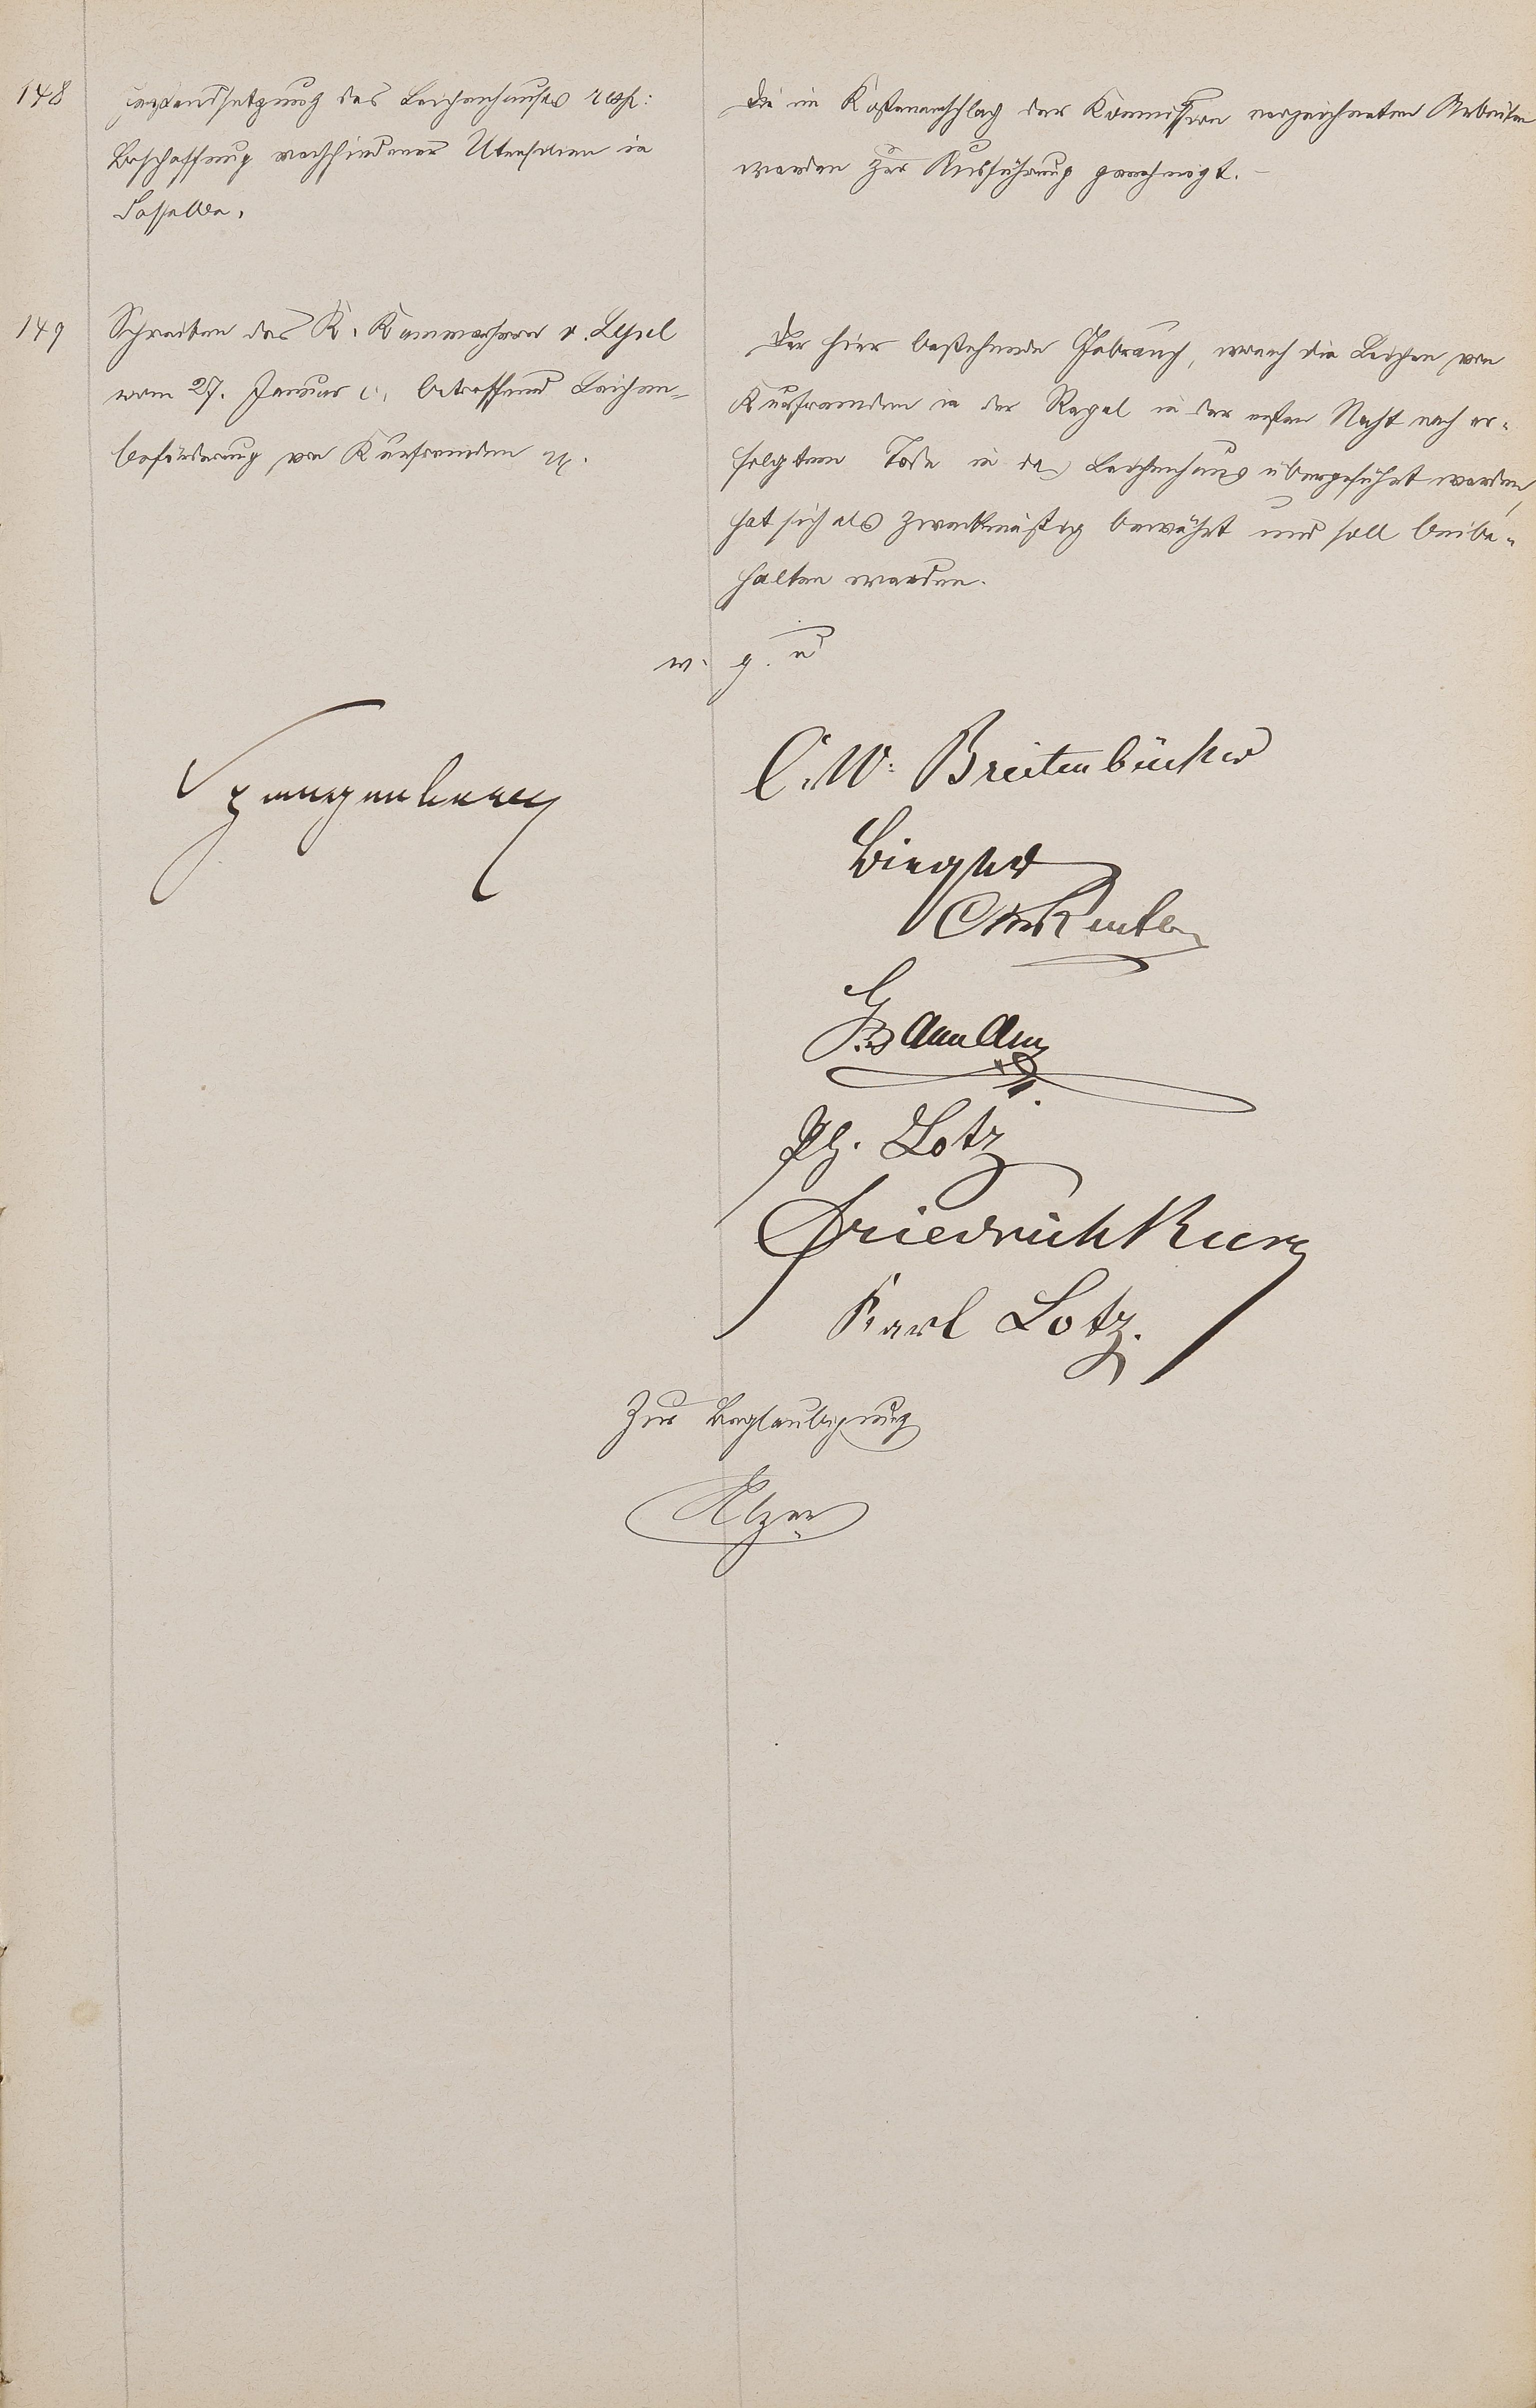 148
Instandsetzung des Leichenhauses resp:
Beschaffung verschiedener Utensilien in
dasselbe.
Die im Kostenanschlag der Kommission verzeichneten Arbeiten
werden zur Ausführung genehmigt. –
149
Schreiben des K. Kammerherrn v.
vom 27. Januar c. betreffend Leichen-
beförderung von Kurfremden
Der hier bestehende Gebrauch, wonach die Leichen von
Kurfremden in der Regel in der ersten Nacht nach er-
folgtem Tode in das Leichenhaus übergeführt werden,
hat sich als zweckmäßig bewährt und soll beibe-
halten werden.
w. g. u
C. W. Breitenbücher
Ph. Lotz
Friedrich Kurz
Karl Lotz.
Zur Beglaubigung